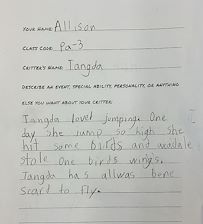 YOUR NAME: Allison
CLASS CODE: Pa-3
CRITTER'S NAME: Tangda
DESCRIBE AN EVENT, SPECIAL ABILITY, PERSONALITY, OR ANYTHING
ELSE YOU WANT ABOUT YOUR CRITTER:
Tangda lovel jumping. One
day she jump so high she
hit some birds and
stole one birds wings.
Tangda has allwas bene
scard to fly.